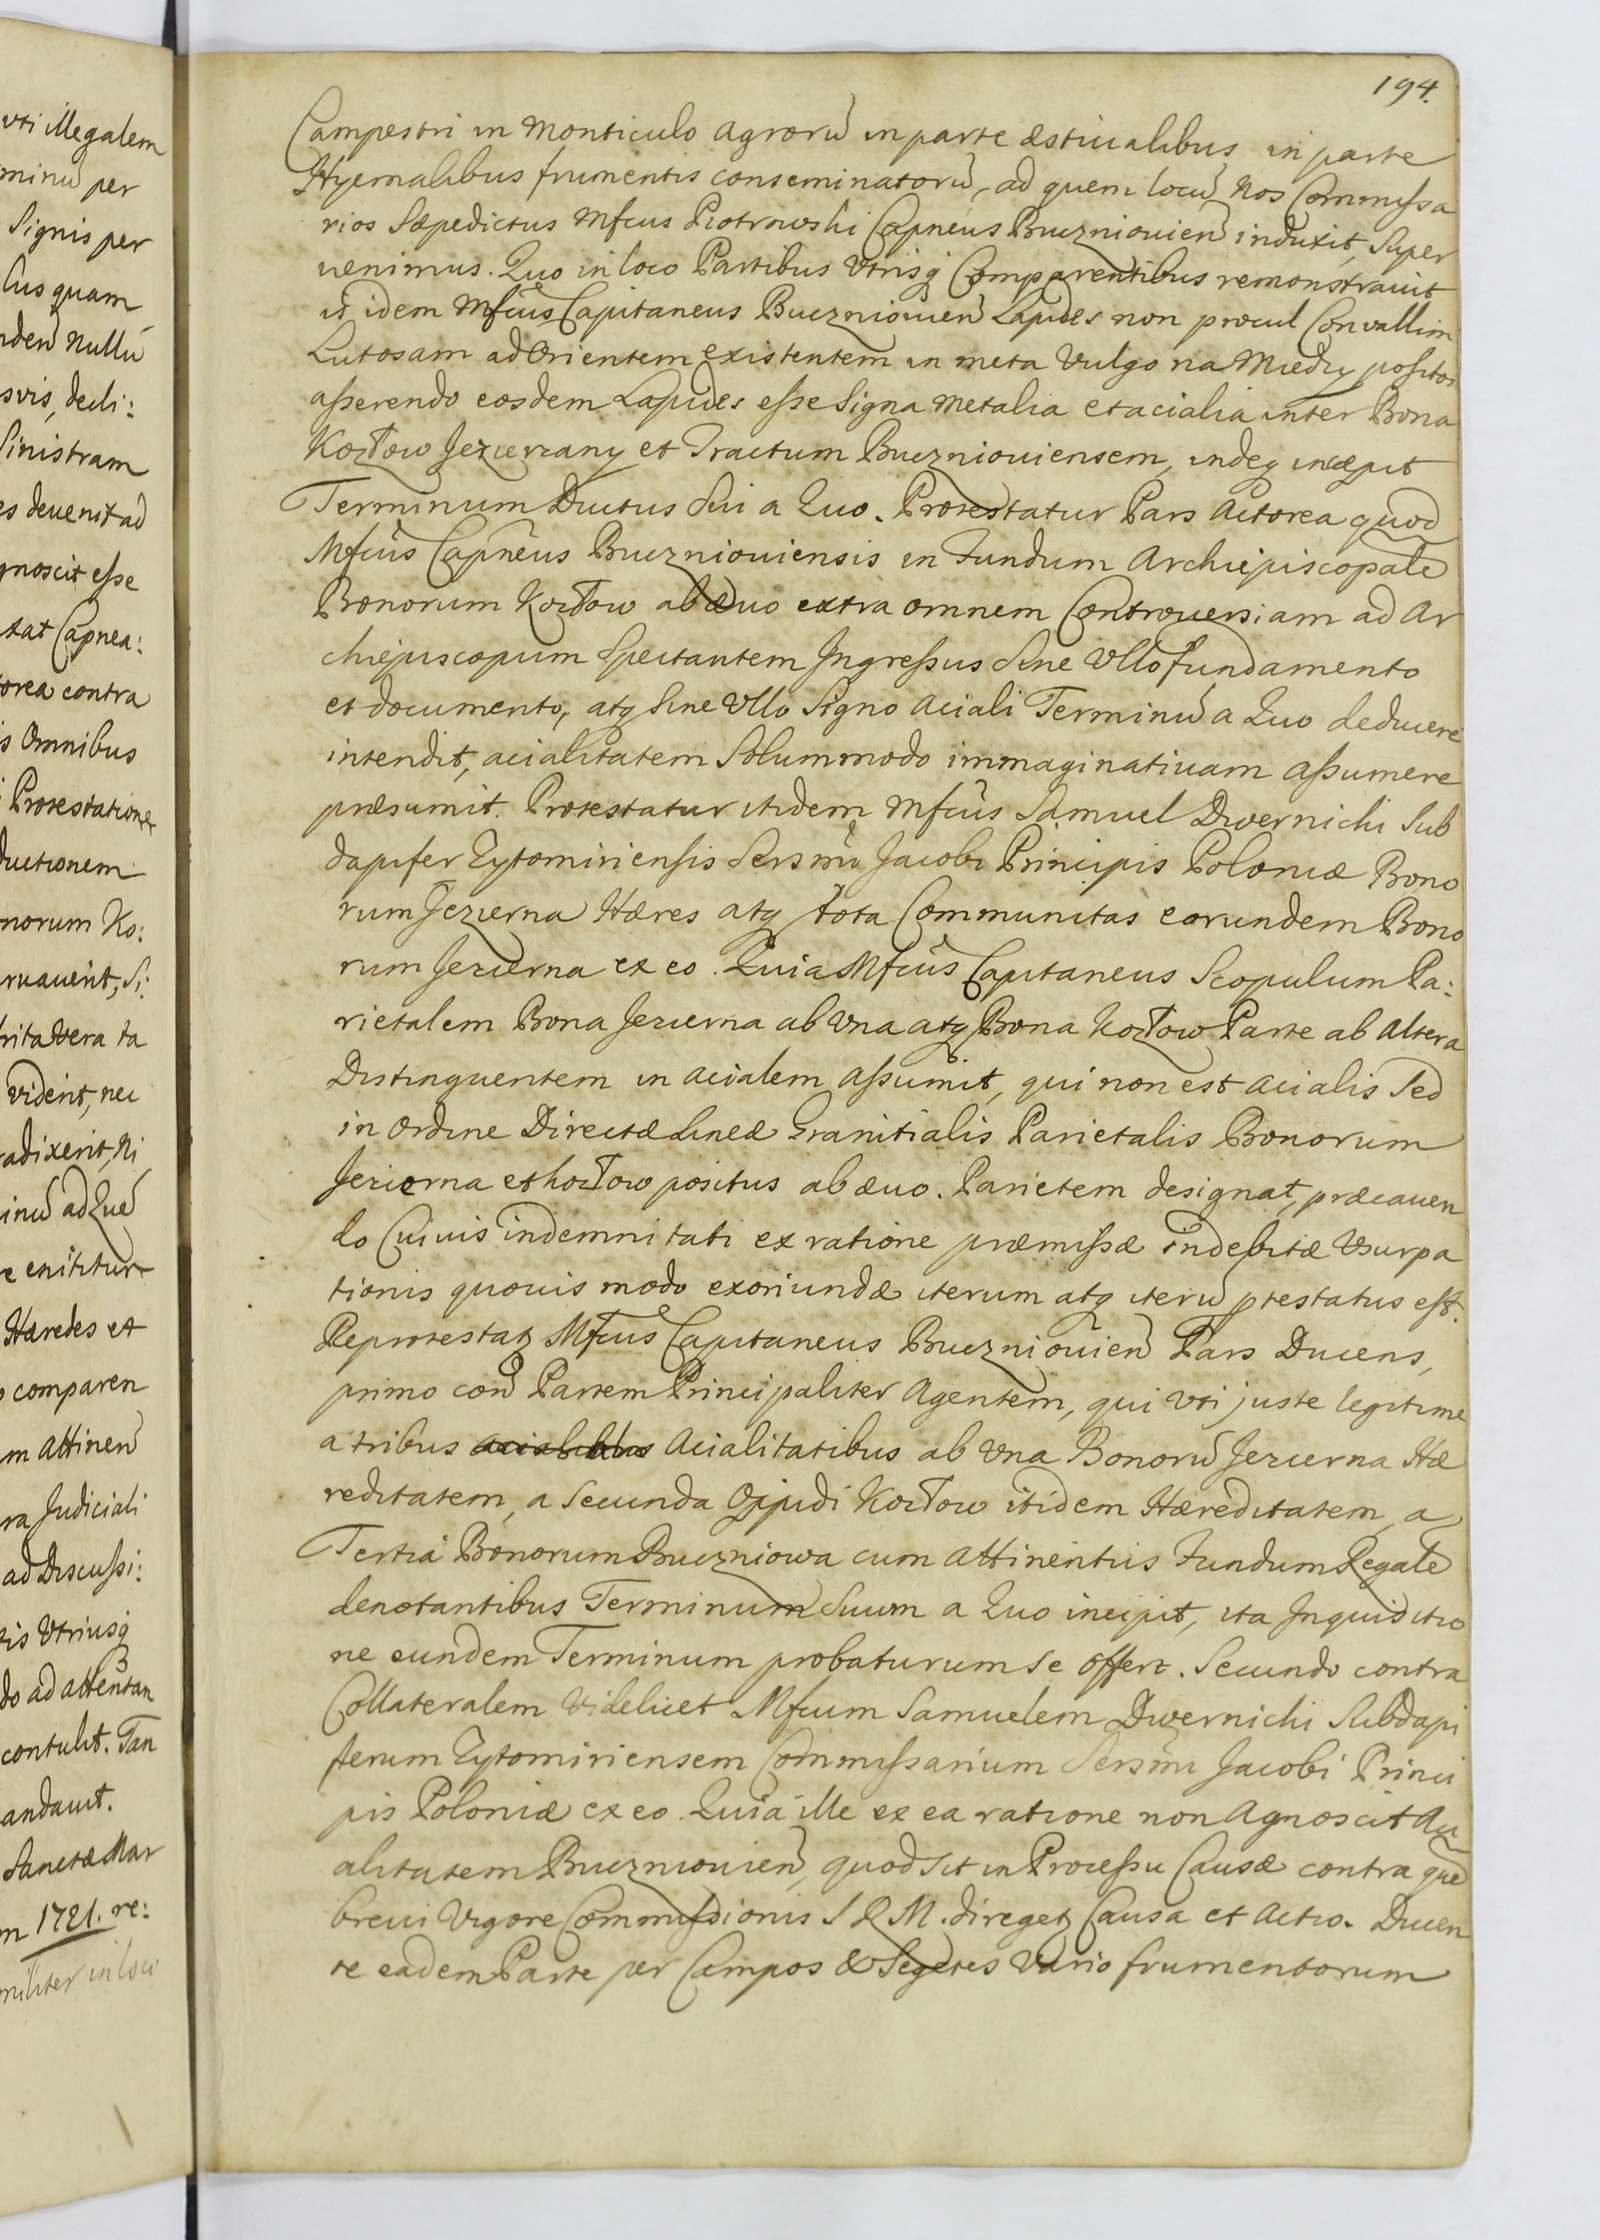 vti illegalem
minũ per
Signis per
lus quam
nden Nullũ
svis, decli:
Sinistram
es deuenit ad
gnoscit esse
tat Capnea:
orea contra
is Omnibus
Protestatione
ductionem
norum Ko:
ruauerit, Si:
rita Vera ta
vident, nec
adixerit, Ni
inũ ad Quẽ
e enititur
Hæredes et
comparen
m Attinen
ra Judiciali
ad Discussi:
tis Vtriusq
do ad attentan
contulit. Tan
andauit.
Sanctæ Mar
m 1721. re:
militer in loco
194.
Campestri in Monticulo Agrorũ in parte æstiualibus in parte
Hyemalibus frumentis conseminatorũ, ad quem locũ Nos Commissa
rios Sæpedictus Mfcus Piotrowski Capneus Buczniouien induxit, Super
uenimus. Quo in loco Partibus Vtrisq Comparentibus remonstrauit
is idem Mfcus Capitaneus Buczniouien Lapides non procul Convallim
Lutosam ad Orientem existentem in meta Vulgo na Miedzy positos
asserendo eosdem Lapides esse Signa Metalia et acialia inter Bona
Kozłow Jezierzany et Tractum Buczniouiensem, indeq incæpit
Terminum Ductus Sui a Quo. Protestatur Pars Actorea quod
Mfcus Capneus Buczniouiensis in Fundum Archiepiscopale
Bonorum Kozłow ab æuo extra omnem Controuersiam ad Ar
chiepiscopum Spectantem Ingressus Sine Vllo fundamento
et documento, atq Sine Vllo Signo Aciali Terminũ a Quo deducere
intendit, acialitatem Solummodo immaginatiuam assumere
præsumit. Protestatur itidem Mfcus Samuel Dwernicki Sub
dapifer Zytomiriensis Sersmi Jacobi Principis Poloniæ Bono
rum Jezierna Hæres atq tota Communitas eorundem Bono
rum Jezierna ex eo. Quia Mfcus Capitaneus Scopulum Pa:
rietalem Bona Jezierna ab Vna atq Bona Kozłow Parte ab Altera
Distinguentem in acialem Assumit, qui non est acialis Sed
in Ordine Directæ Lineæ Granitialis Parietalis Bonorum
Jezierna et Kozłow positus ab æuo. Parietem designat, præcauen
do Cuiuis indemnitati ex ratione præmissæ indebitæ Vsurpa
tionis quouis modo exoriundæ iterum atq iterũ ptestatus est.
Reprotestatz Mfcus Capitaneus Buczniouien Pars Ducens,
primo con Partem Principaliter Agentem, qui Vti juste legitime
a tribus Acialitatibus ab Vna Bonorũ Jezierna Hæ
reditatem, a Secunda Oppidi Kozłow itidem Hæreditatem, a
Tertia Bonorum Buczniowa cum Attinentiis Fundum Regale
denotantibus Terminum Suum a Quo incipit, ita Inquisitio
ne eundem Terminum probaturum Se Offert. Secundo contra
Collateralem Videlicet Mfcum Samuelem Dwernicki Subdapi
ferum Zytomiriensem Commissarium Sersmi Jacobi Princi
pis Poloniæ ex eo. Quia ille ex ea ratione non Agnoscit Aci
alitatem Buczniouien, quod Sit in Processu Causæ contra quẽ
breui Vigore Commissionis S R M. dirigetz Causa et Actio. Ducen
te eadem Parte per Campos & Segetes Vario frumentorum